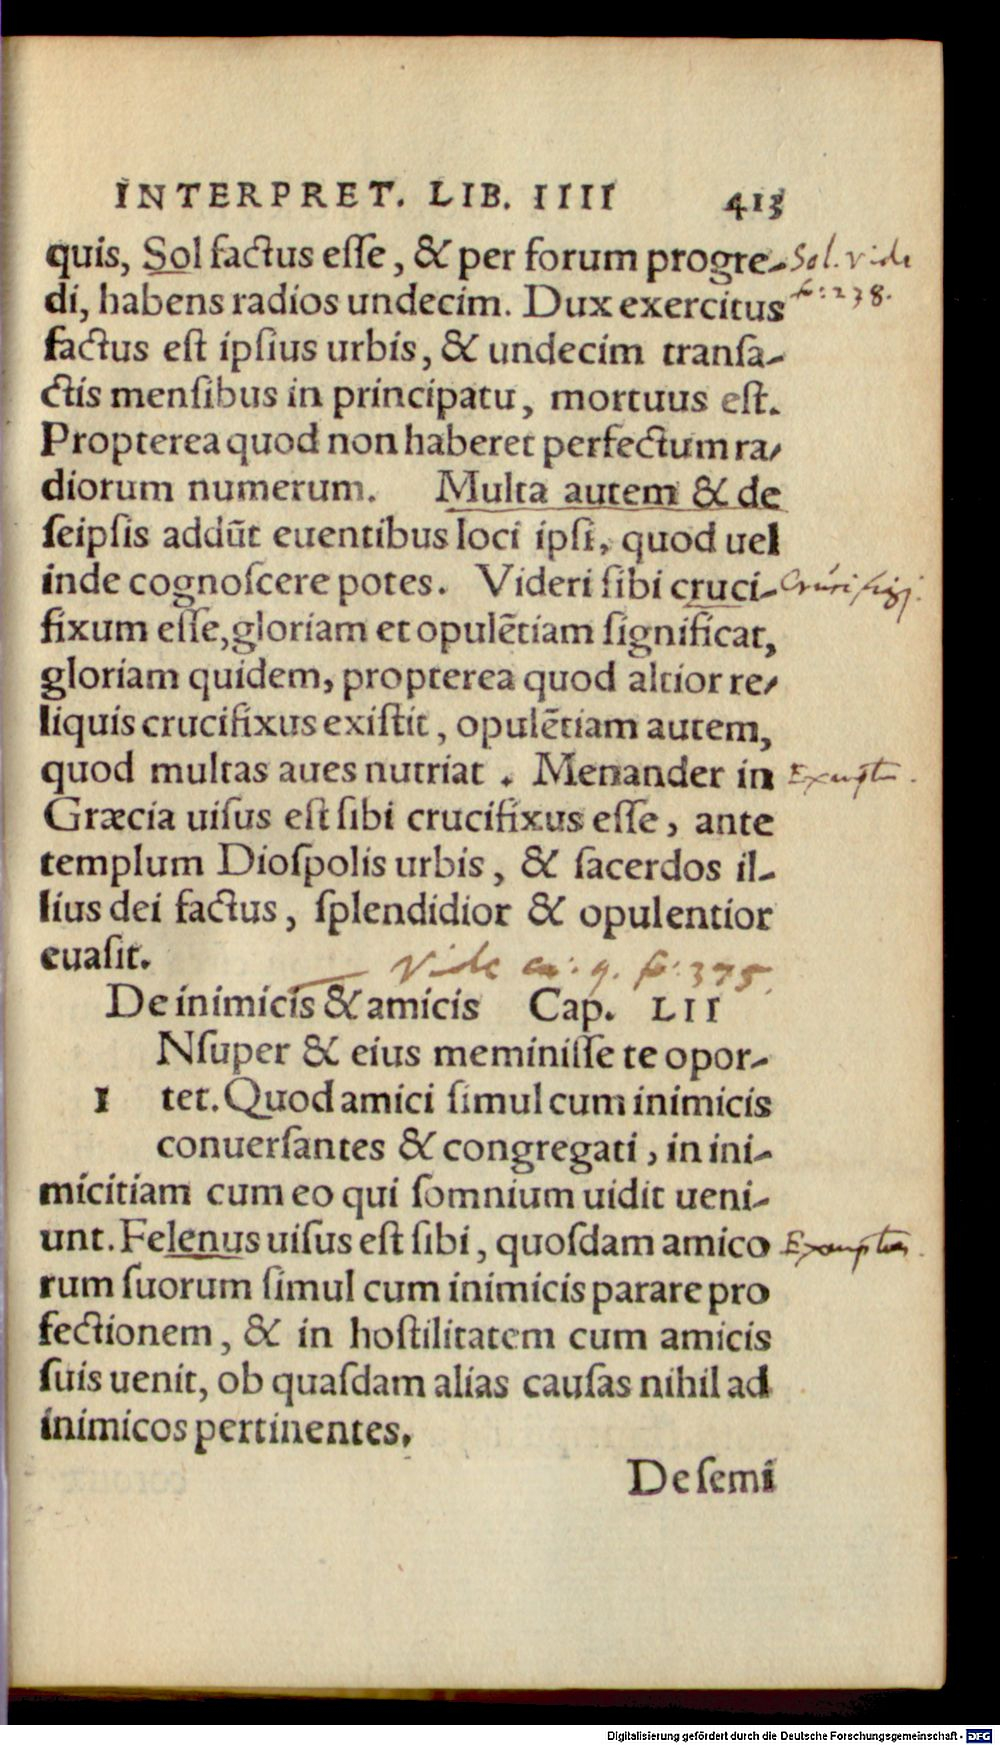 INTERPRET. LIB. IIII 413
quis, Sol factus eſſe, & per forum progre- Sol. vide
di, habens radios undecim. Dux exercitus fo: 238.
factus eſt ipſius urbis, & undecim tranſa-
ctis menſibus in principatu, mortuus eſt.
Propterea quod non haberet perfectum ra-
diorum numerum. Multa autem & de
ſeipſis addūt euentibus loci ipſi, quod uel
inde cognoſcere potes. Videri ſibi cruci- Crucifigj.
fixum eſſe, gloriam et opulētiam ſignificat,
gloriam quidem, propterea quod altior re-
liquis crucifixus exiſtit, opulētiam autem,
quod multas aues nutriat. Menander in
Græcia uiſus eſt ſibi crucifixus eſſe, ante
templum Dioſpolis urbis, & ſacerdos il-
lius dei factus, ſplendidior & opulentior
euaſit.
Vide ca: 9. fo: 375.
De inimicis & amicis Cap. LII
Nſuper & eius meminiſſe te opor-
I tet. Quod amici ſimul cum inimicis
conuerſantes & congregati, in ini-
micitiam cum eo qui ſomnium uidit ueni-
unt. Felenus uiſus eſt ſibi, quoſdam amico
rum ſuorum ſimul cum inimicis parare pro
fectionem, & in hoſtilitatem cum amicis
ſuis uenit, ob quaſdam alias cauſas nihil ad
inimicos pertinentes.
De ſemi
Digitalisierung gefördert durch die Deutsche Forschungsgemeinschaft - DFG